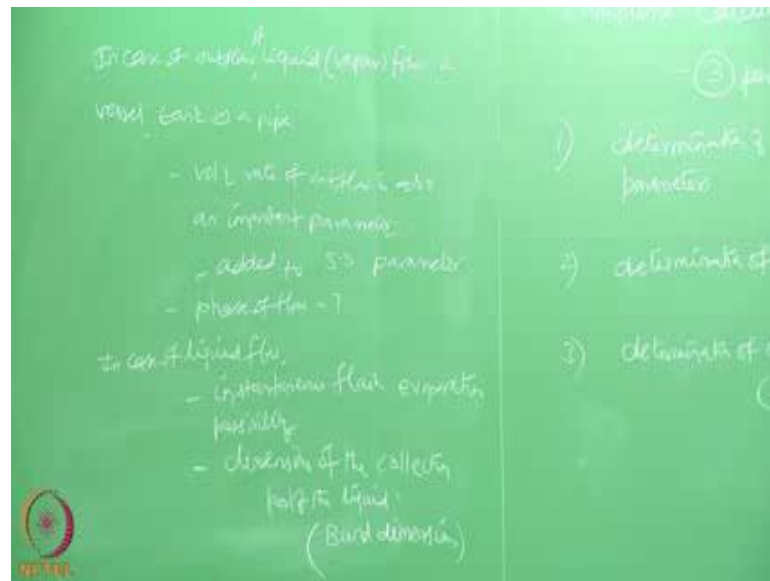 In case of outflow of liquid (vapour) from a
vessel tank or a pipe
- vol/ rate of outflow is also
an important parameter
- added to S.S parameter
- phase of flow - ?
In case of liquid flow,
- instantaneous flash evaporation
possibility
- dimension of the collecting
pool of the liquid
(Bund dimension)
- (3)
1) determinate of
parameter
2) determinate of
3) determinate of
NPTEL